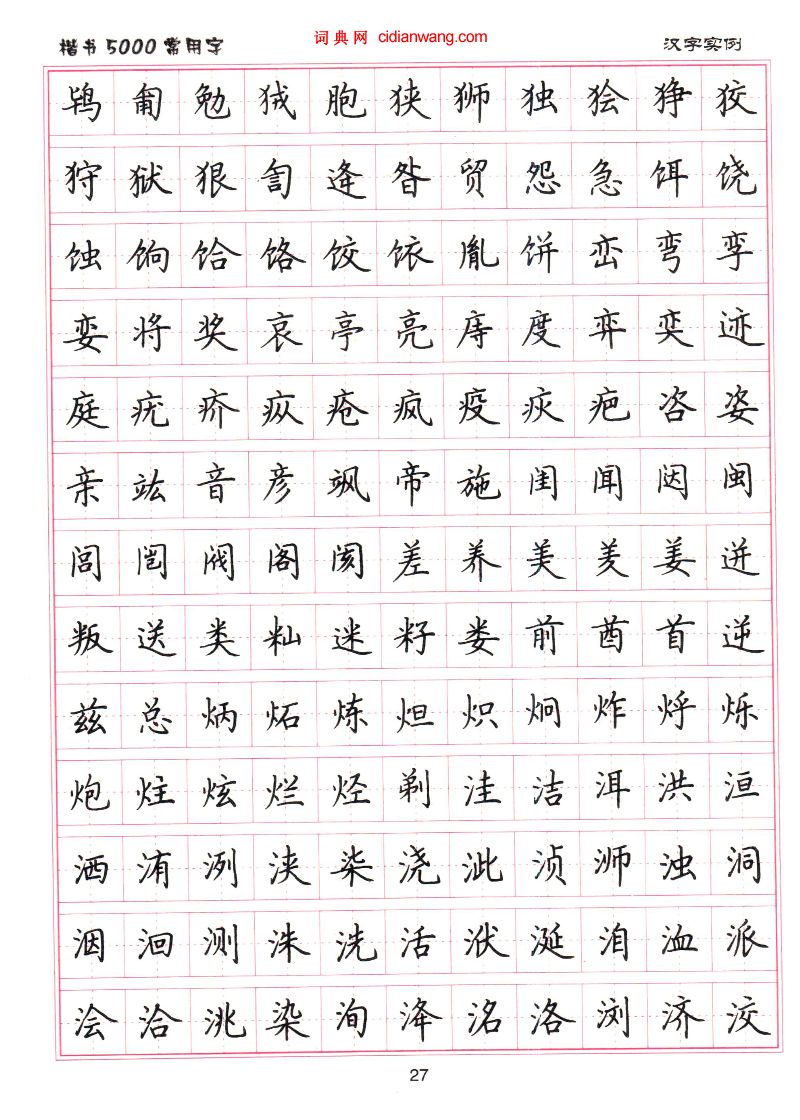 楷书5000常用字 词典网 cidianwang.com 汉字实例
鸨匍勉狨胞狭狮独狯狰狡
狩狱狠訇逄昝贸怨急饵饶
蚀饷饸饹饺饻胤饼峦弯孪
娈将奖哀亭亮庤度弈奕迹
庭疣疥疭疮疯疫疢疤咨姿
亲竑音彦飒帝施闺闻闼闽
闾闿阀阁阂差养美羑姜迸
叛送类籼迷籽娄前酋首逆
兹总炳炻炼炟炽炯炸烀烁
炮炷炫烂烃剃洼洁洱洪洹
洒洧洌浃柒浇泚浈浉浊洞
洇洄测洙洗活洑涎洎洫派
浍洽洮染洵洚洺洛浏济洨
27